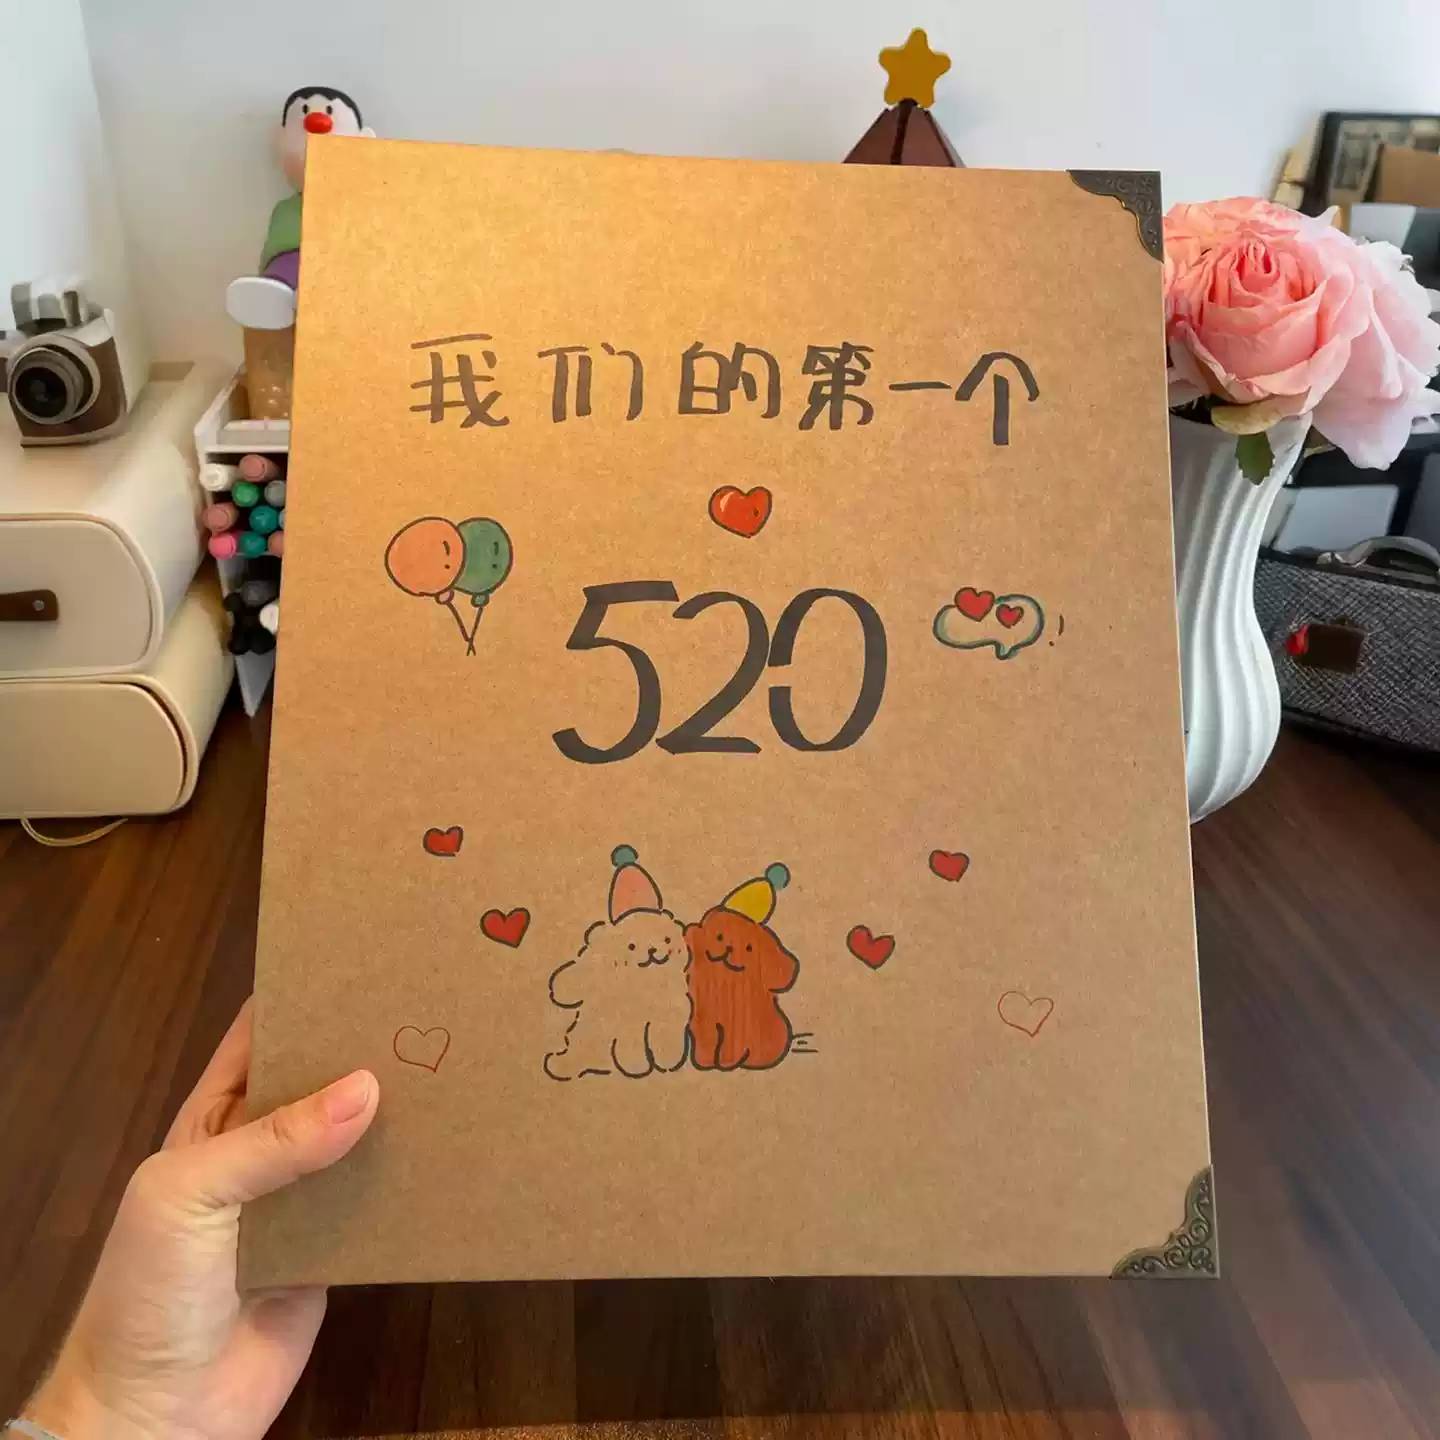 我们的第一个
520